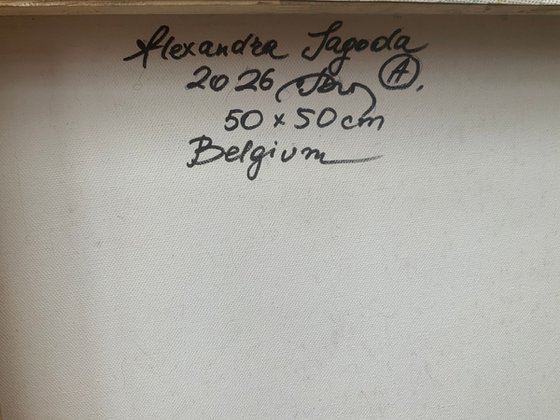 Alexandra Jagoda
2026 A.
50 x 50 cm
Belgium